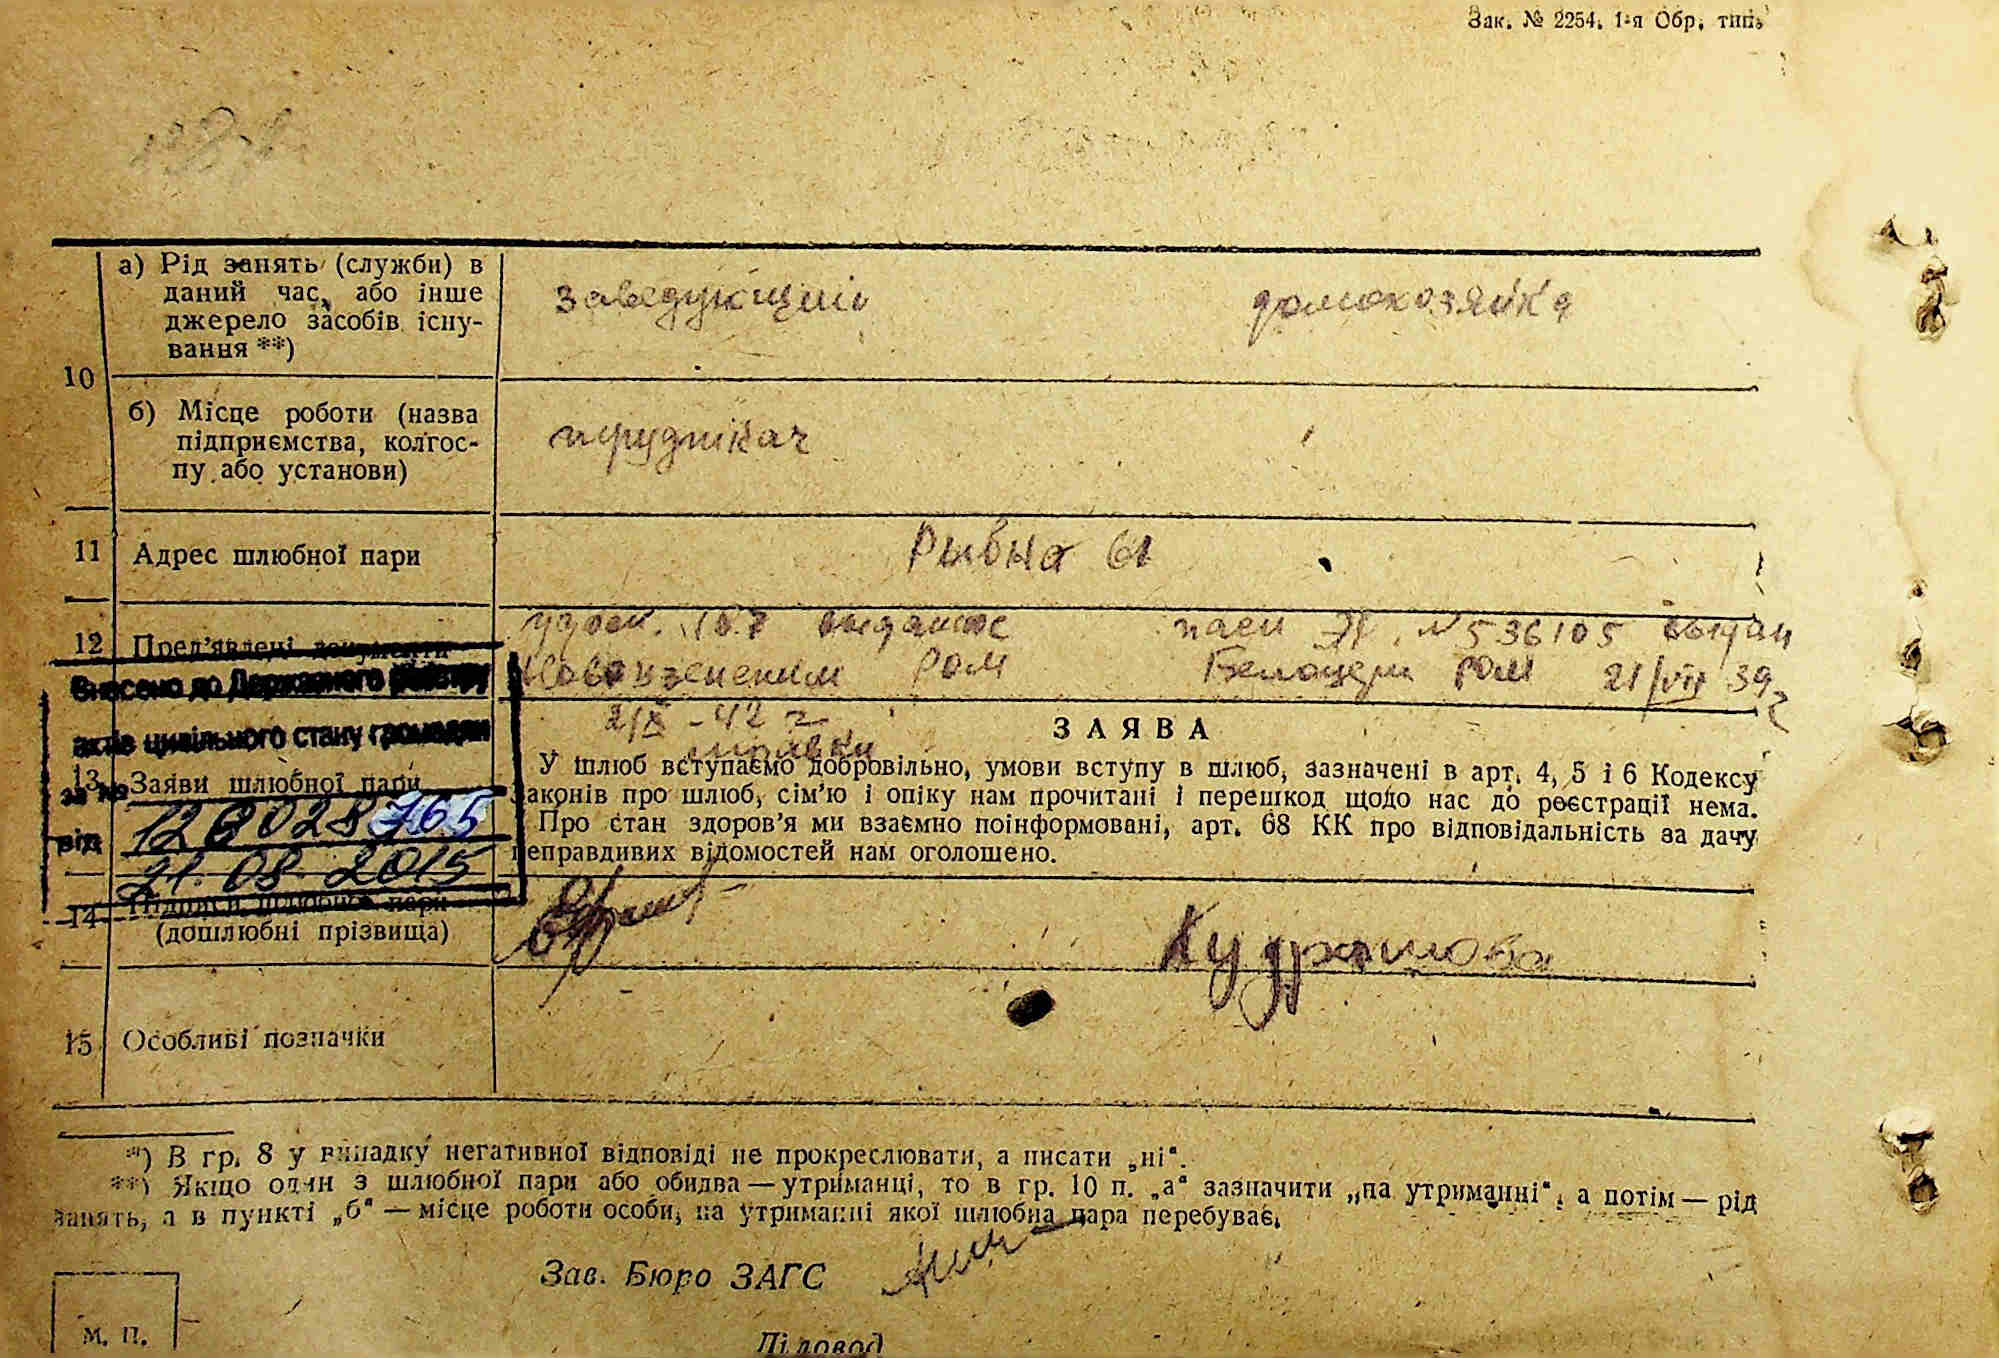 Зак. № 2254. 1-я Обр. тип.
10
а) Рід занять (служби) в
даний час, або інше
джерело засобів існу-
вання **)
заведующий
домохозяйка
б) Місце роботи (назва
підприємства, колгос-
пу або установи)
11
Адрес шлюбної пари
Рыбна 61
12
Пред'явлені документи
выданное
РОМ
2/X - 42 г
№ 536105 выдан
РОМ 21/VII 39
Внесено до Державного реєстру
актів цивільного стану громадян
за №
126028765
від
21.08.2015
13
Заяви шлюбної пари
ЗАЯВА
У шлюб вступаємо добровільно, умови вступу в шлюб, зазначені в арт. 4, 5 і 6 Кодексу
законів про шлюб, сім'ю і опіку нам прочитані і перешкод щодо нас до реєстрації нема.
Про стан здоров'я ми взаємно поінформовані, арт. 68 КК про відповідальність за дачу
неправдивих відомостей нам оголошено.
14
Підписи шлюбної пари
(дошлюбні прізвища)
Кудряшова
15
Особливі позначки
*) В гр. 8 у випадку негативної відповіді не прокреслювати, а писати „ні“.
**) Якщо один з шлюбної пари або обидва — утриманці, то в гр. 10 п. „а“ зазначити „на утриманні“, а потім — рід
занять, а в пункті „б“ — місце роботи особи, на утриманні якої шлюбна пара перебуває.
Зав. Бюро ЗАГС
М. П.
Діловод